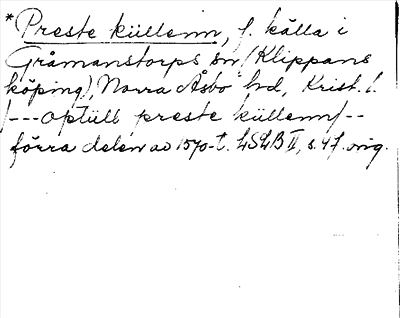 *Preste küllenn, f. källa i
Gråmanstorps sn (Klippans
köping), Norra Åsbo hd, Krist. l.
/---optill preste küllenn/--
förra delen av 1570-t. LSLB II, s. 47. orig.